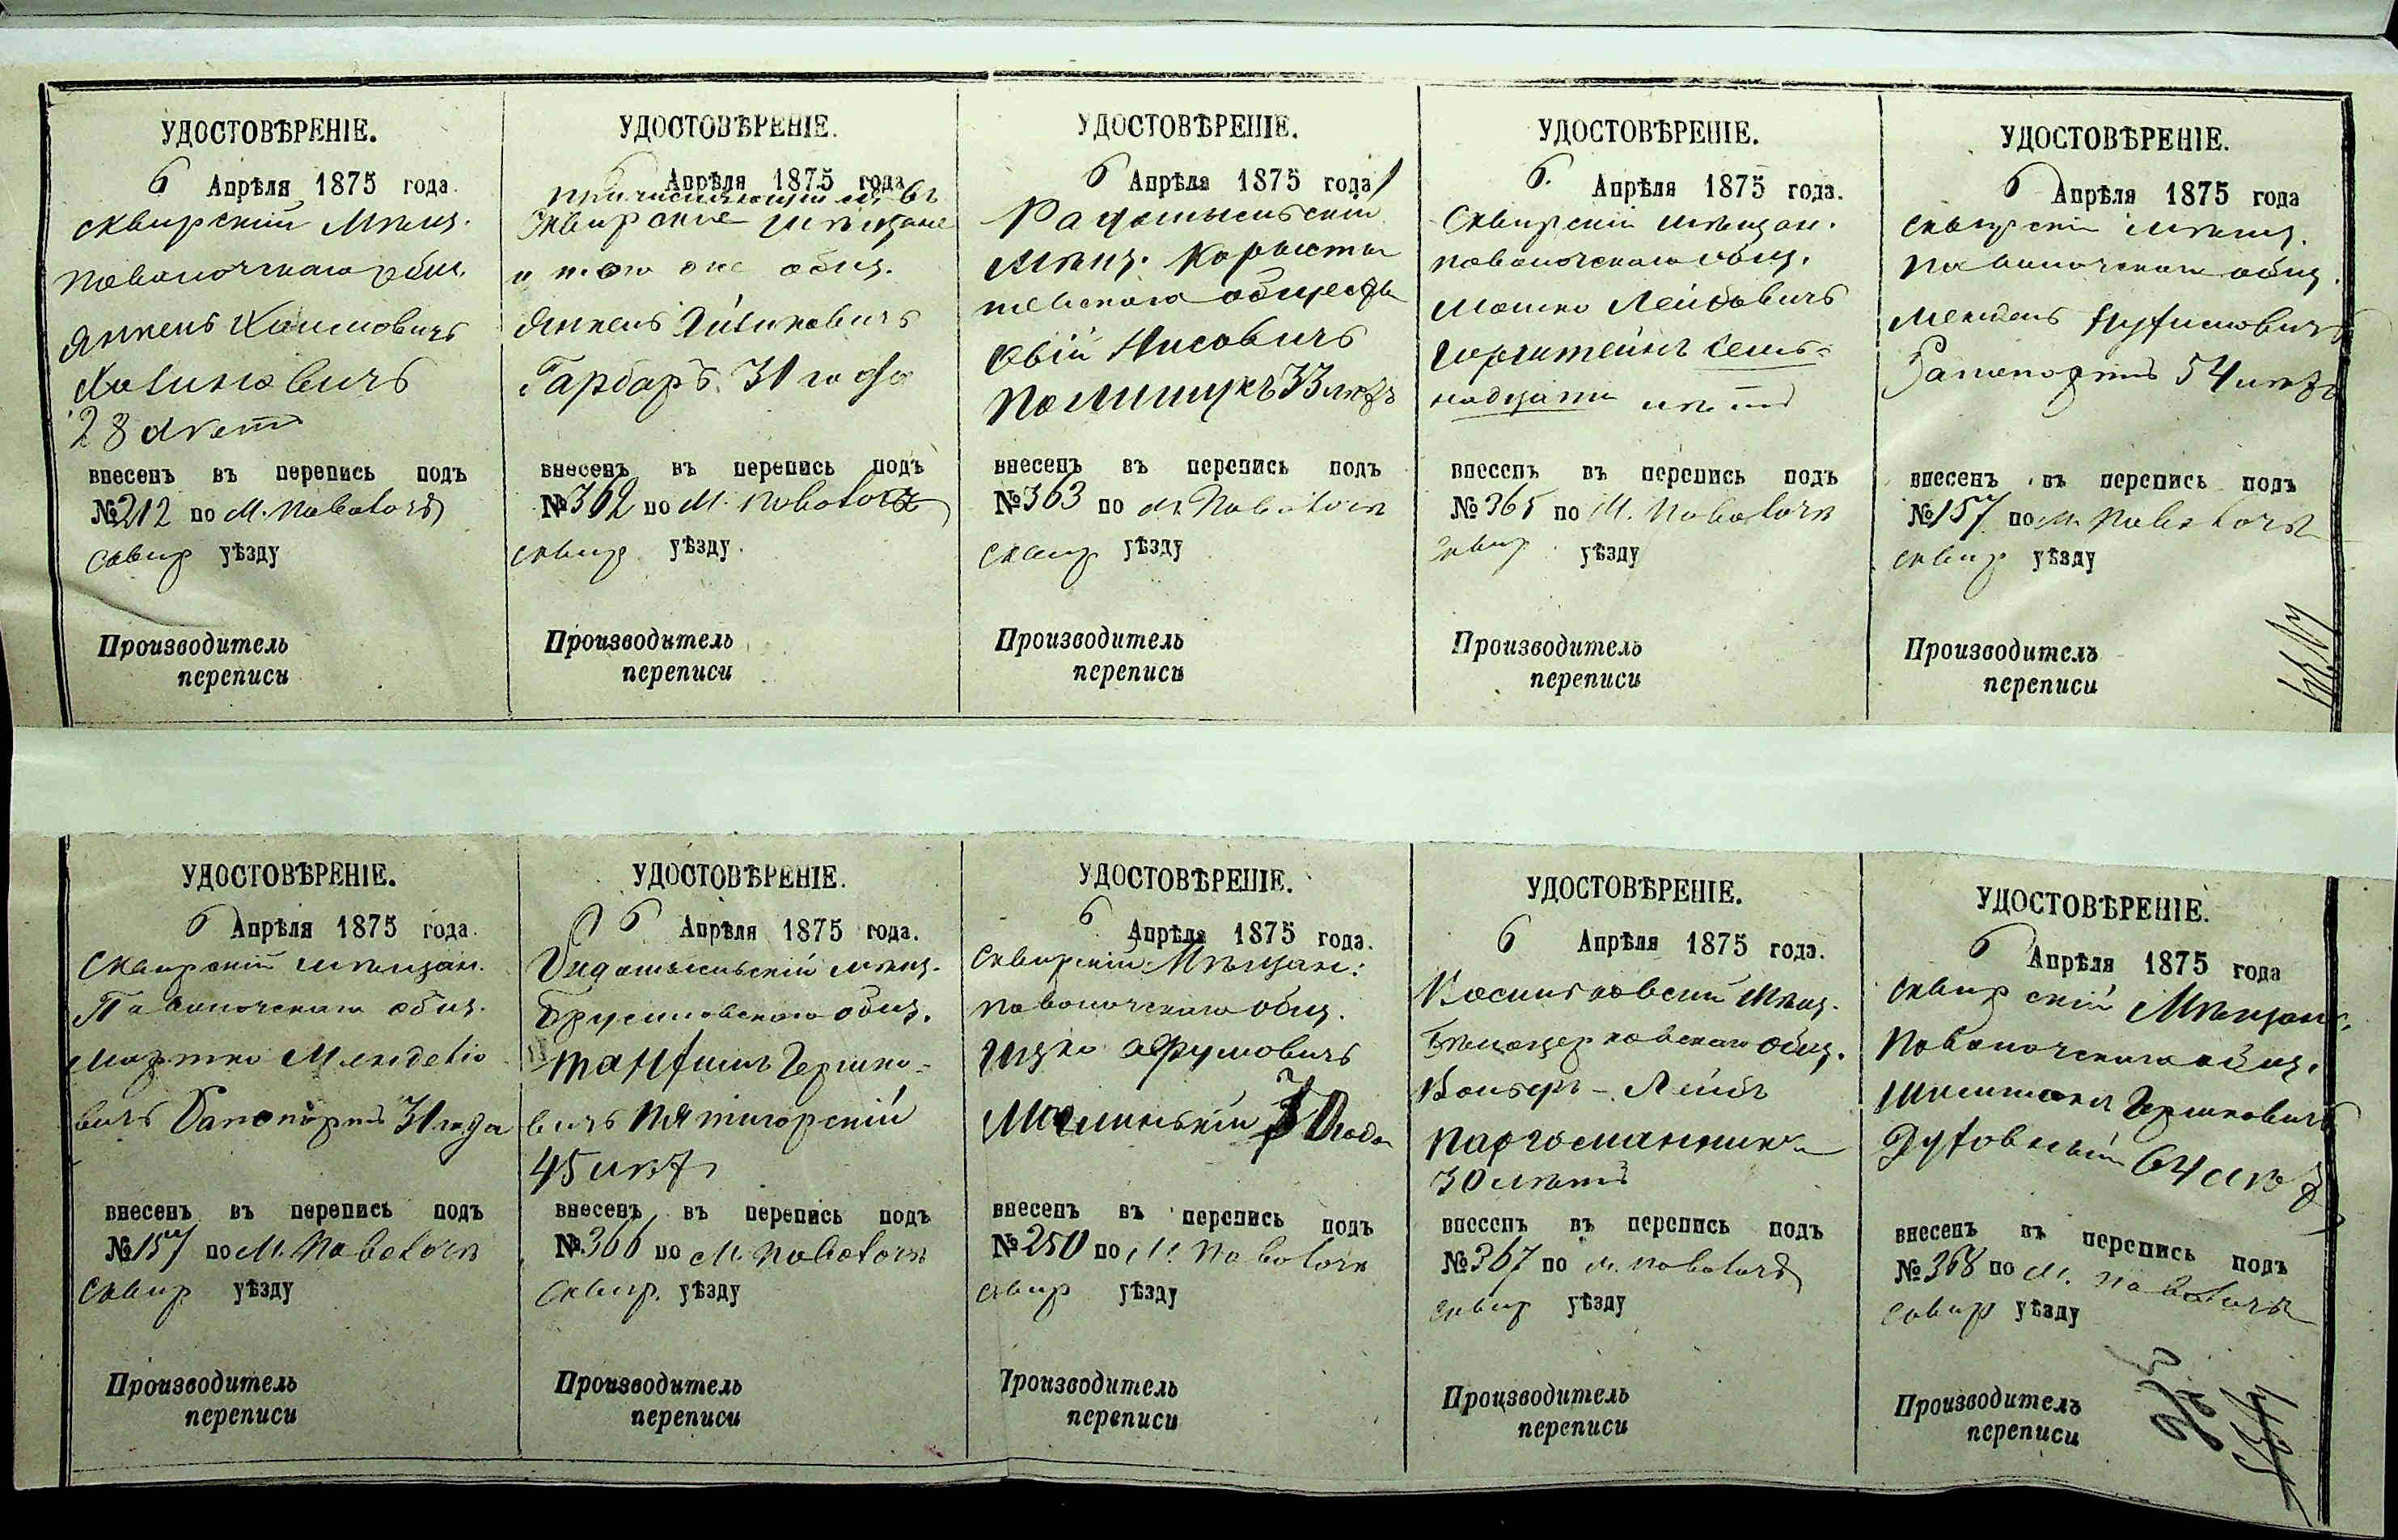 УДОСТОВѢРЕНІЕ.
6 Апрѣля 1875 года.
Сквирскій Мѣщ.
Паволочскаго общ.
Янкель Хаимовичъ
28 лѣтъ
внесенъ въ перепись подъ
№ 212 по М. Паволочѣ
Сквир уѣзду
Производитель
переписи
УДОСТОВѢРЕНІЕ.
6 Апрѣля 1875 года
причисляющійся въ
Сквирскіе мѣщане
и того же общ.
Янкель
Гарбаръ 31 года
внесенъ въ перепись подъ
№ 362 по М. Паволочѣ
Сквир уѣзду.
Производитель
переписи
УДОСТОВѢРЕНІЕ.
6 Апрѣля 1875 года
Радомысльскій
Мѣщ. Коросты
шевскаго общества
Нисовичъ
Полищукъ 33 лѣтъ
внесенъ въ перепись подъ
№ 363 по М. Паволочѣ
Сквир уѣзду
Производитель
переписи
УДОСТОВѢРЕНІЕ.
6. Апрѣля 1875 года.
Сквирскій мѣщан.
Паволочскаго общ.
Мошко Лейбовичъ
Горнштейнъ семь-
надцати лѣтъ
внесенъ въ перепись подъ
№ 365 по М. Паволочѣ
Сквир уѣзду
Производитель
переписи
УДОСТОВѢРЕНІЕ.
6 Апрѣля 1875 года
Сквирскій мѣщ.
Паволочскаго общ.
Мендель Нухимовичъ
Рапопортъ 54 лѣтъ
внесенъ въ перепись подъ
№ 157 по М. Паволочѣ
Сквир уѣзду
Производитель
переписи
УДОСТОВѢРЕНІЕ.
6 Апрѣля 1875 года.
Сквирскій мѣщан.
Паволочскаго общ.
Мортко Менделіо
вичъ Рапопортъ 31 года
внесенъ въ перепись подъ
№ 157 по М. Паволочѣ
Сквир уѣзду
Производитель
переписи
УДОСТОВѢРЕНІЕ.
6 Апрѣля 1875 года.
Радомысльскій мѣщ.
Брусиловскаго общ.
Танхимъ Гершко-
вичъ Пятигорскій
45 лѣтъ
внесенъ въ перепись подъ
№ 366 по М. Паволочѣ
Сквир. уѣзду
Производитель
переписи
УДОСТОВѢРЕНІЕ.
6 Апрѣля 1875 года.
Сквирскій Мѣщан.
Паволочскаго общ.
Ицко Сруловичъ
внесенъ въ перепись подъ
№ 250 по М. Паволочѣ
Сквир уѣзду
Производитель
переписи
УДОСТОВѢРЕНІЕ.
6 Апрѣля 1875 года.
Васильковскій Мѣщ.
Бѣлоцерковскаго общ.
Вольберъ - Лейбъ
30 лѣтъ
внесенъ въ перепись подъ
№ 367 по М. Паволочѣ
Сквир уѣзду
Производитель
переписи
УДОСТОВѢРЕНІЕ.
6 Апрѣля 1875 года
Сквирскій Мѣщан.
Паволочскаго общ.
Гершковичъ
64 лѣтъ
внесенъ въ перепись подъ
№ 368 по М. Паволочѣ
Сквир уѣзду
Производитель
переписи